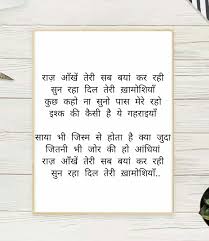 राज़ आँखें तेरी सब बयां कर रही
सुन रहा दिल तेरी ख़ामोशियाँ
कुछ कहो ना सुनो पास मेरे रहो
इश्क की कैसी है ये गहराइयाँ
साया भी जिस्म से होता है क्या जुदा
जितनी भी जोर की हो आंधियां
राज़ आँखें तेरी सब बयां कर रही
सुन रहा दिल तेरी ख़ामोशियाँ..